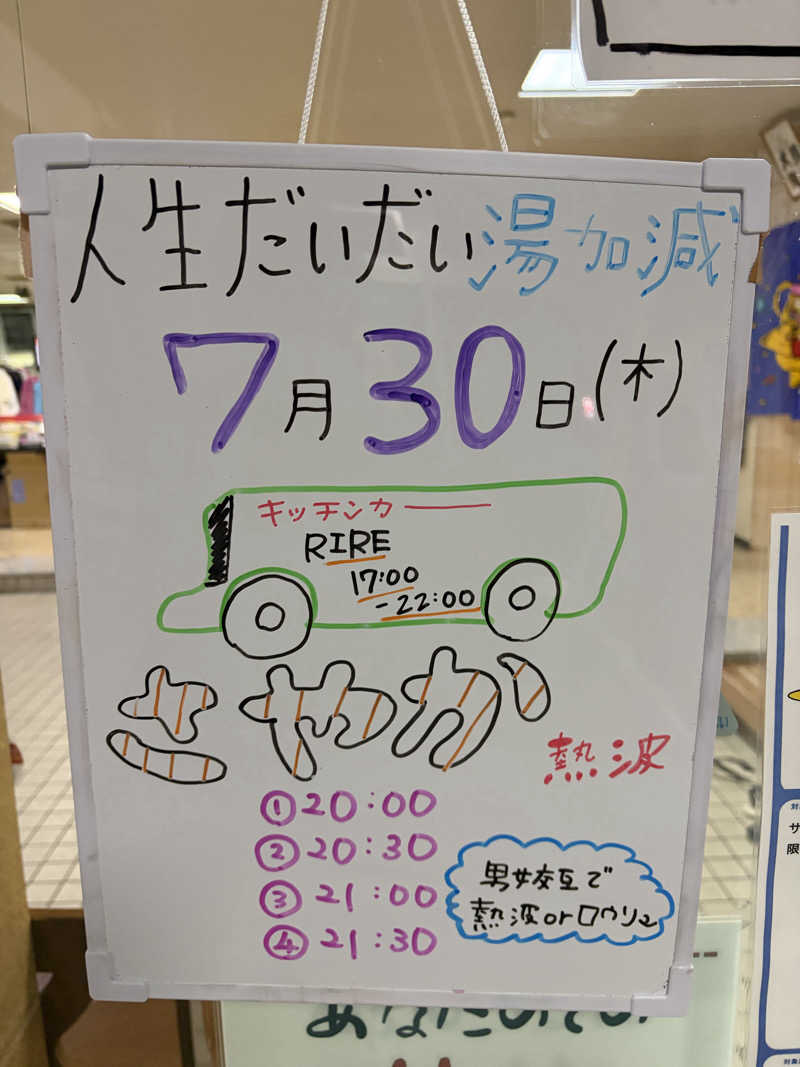 人生だいだい湯加減
7月30日(木)
キッチンカー
RIRE
17:00
-22:00
さやか
熱波
①20:00
②20:30
③21:00
④21:30
男女交互で
熱波orロウリュ